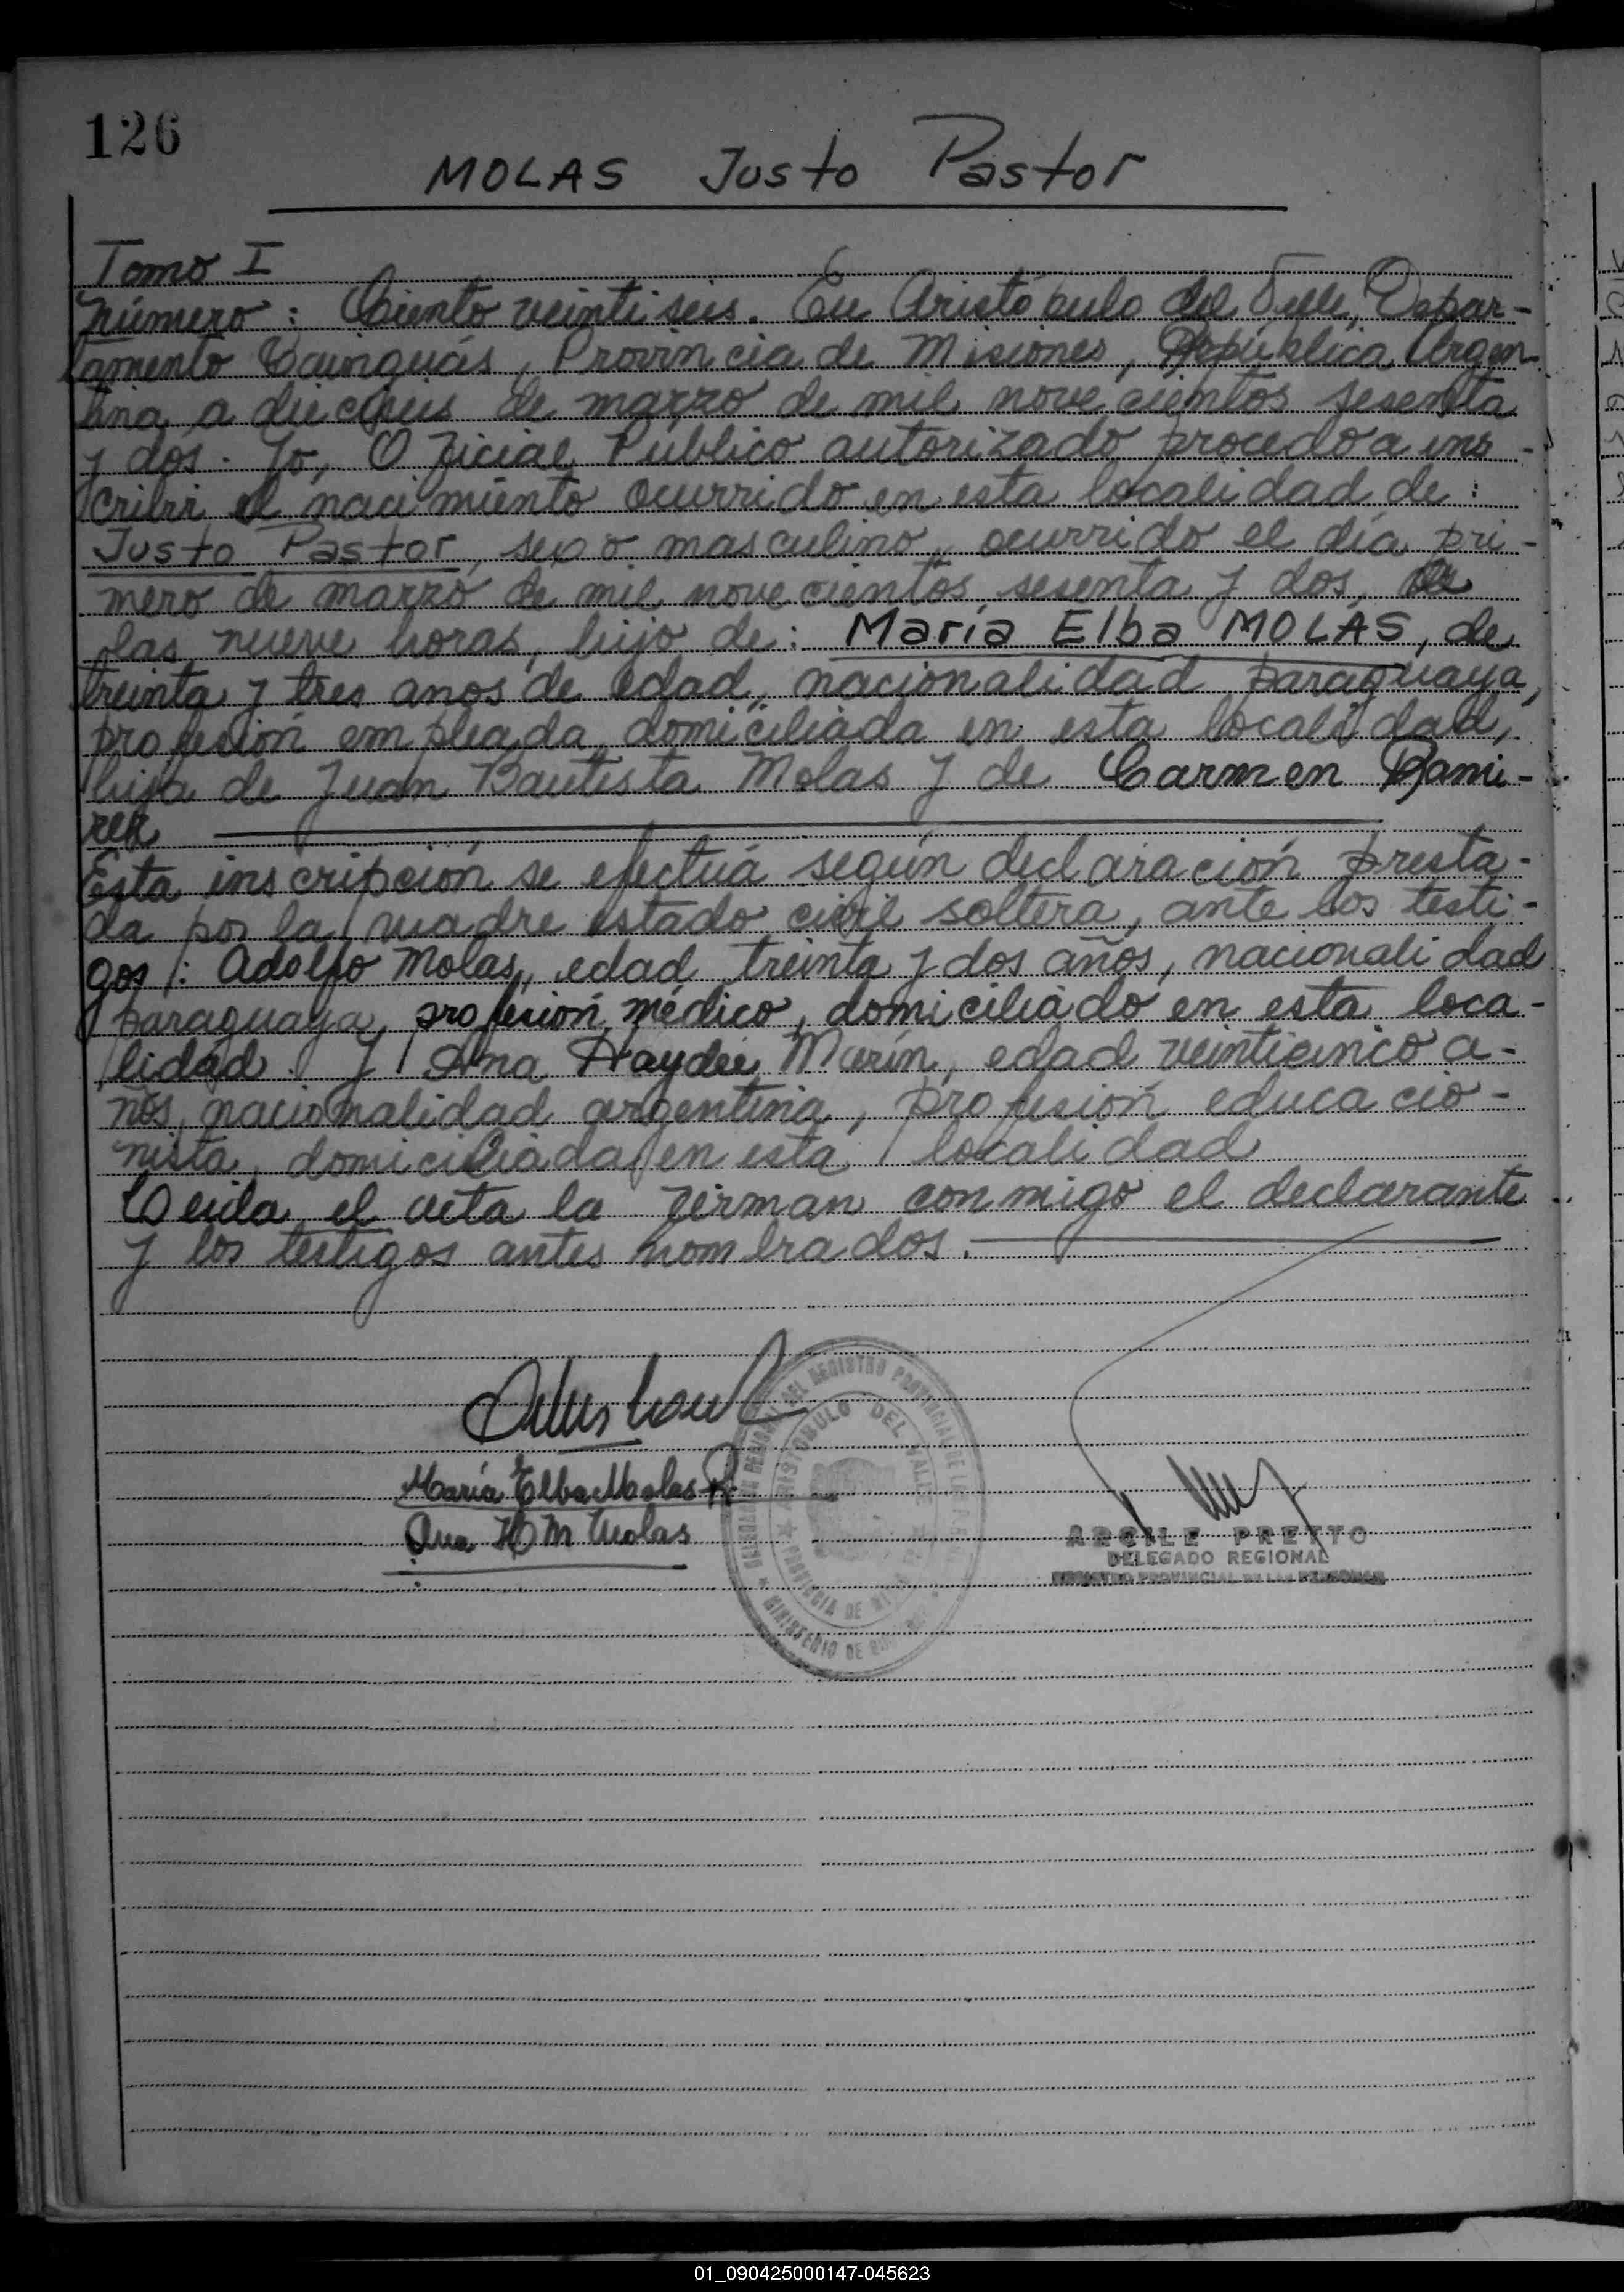 126
MOLAS Justo Pastor
Tomo I
número: Ciento veintiseis. En Aristóbulo del Valle, Depar-
tamento Cainguás, Provincia de Misiones, República Argen
tina, a dieciseis de marzo de mil novecientos sesenta
y dos. Yo, Oficial Público autorizado procedo a ins-
cribir el nacimiento ocurrido en esta localidad de:
Justo Pastor, sexo masculino, ocurrido el día pri-
mero de marzo de mil novecientos sesenta y dos, a
las nueve horas, hijo de: María Elba MOLAS, de
treinta y tres años de edad, nacionalidad paraguaya,
profesión empleada, domiciliada en esta localidad,
hija de Juan Bautista Molas y de Carmen Rami-
rez
Esta inscripción se efectúa según declaración presta-
da por la madre estado civil soltera, ante los testi-
gos: Adolfo Molas, edad treinta y dos años, nacionalidad
paraguaya, profesión médico, domiciliado en esta loca-
lidad. Y Ana Haydée Marín, edad veinticinco a-
ños, nacionalidad argentina, profesión educacio-
nista, domiciliada en esta localidad
Leida el acta la firman conmigo el declarante
y los testigos antes nombrados.
María Elba Molas R.
Ana H M Molas
ARISTOBULO DEL VALLE
PROVINCIA DE
MINISTERIO DE
DEL REGISTRO PROVINCIAL DE LAS
ARCILE PRETTO
DELEGADO REGIONAL
REGISTRO PROVINCIAL DE LAS PERSONAS
01_090425000147-045623